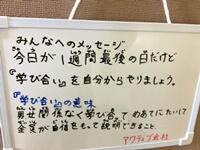 みんなへのメッセージ
今日が1週間最後の日だけど
『学び合い』を自分からやりましょう。
『学び合い』の意味
男女関係なく学び合って めあてにたいして
全員が自信をもって説明できること
アクティブ会社